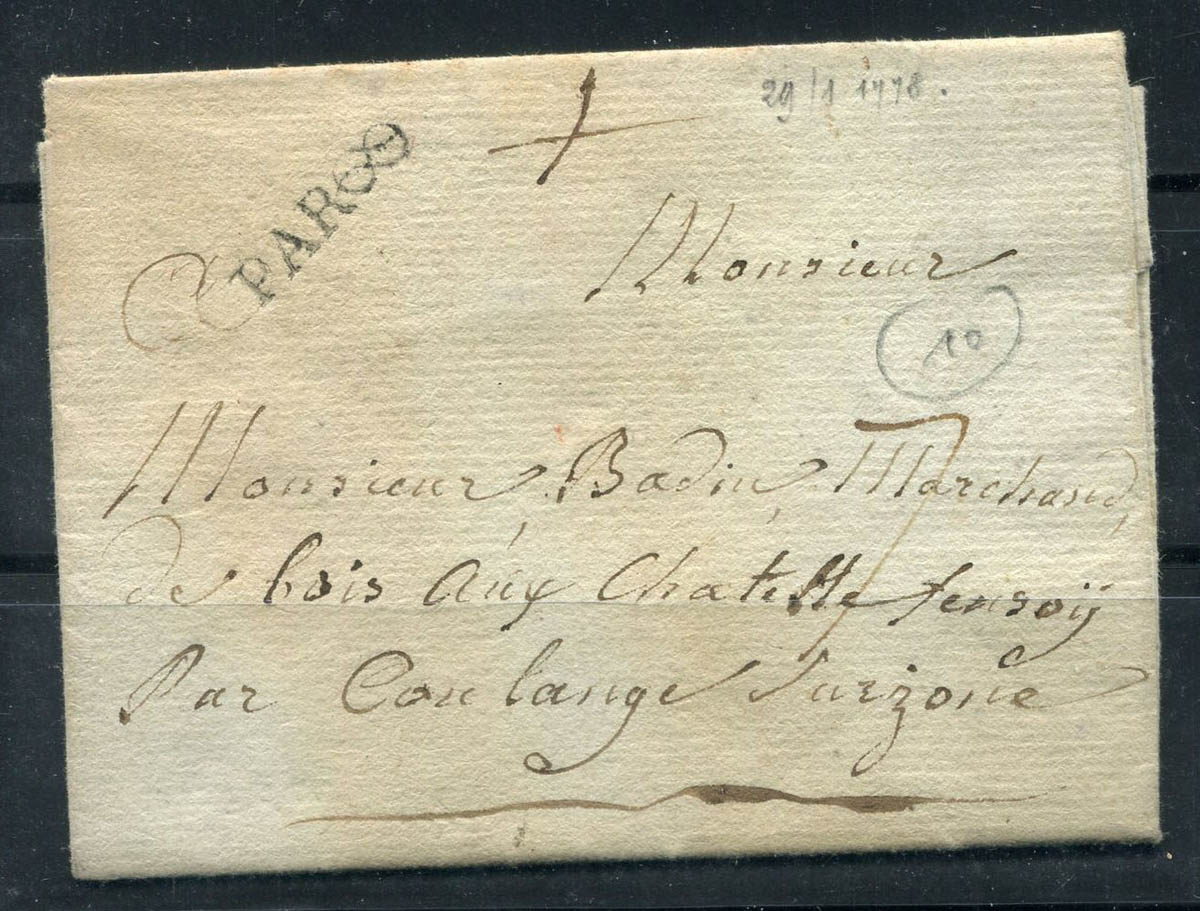 29/1 1778.
PAR
Monsieur
10
Monsieur Badin Marchand
de bois aux Chatelle fensoÿ
Par Coulange Surzone
7